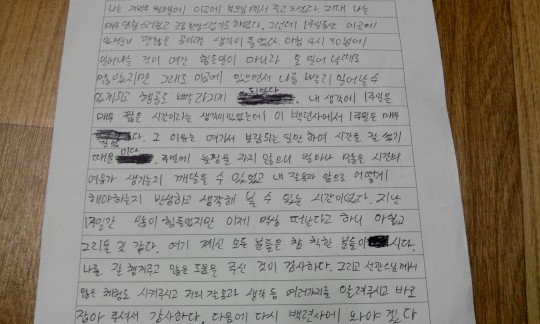 나는 저번주 일요일에 이곳에 부모님께서 주고 오셨다. 그때 나는
매우 당황스러웠고 조금 원망스럽기도 하였다. 그런데 1주일동안 이곳에
있어보니 괜찮은 곳이라는 생각이 들었다. 아침 4시 30분에
일어나는 것이 여간 힘든일이 아니라 못 일어날때도
많았지만 그래도 이곳에 있으면서 나름 빨리 일어날 수
있게되고 행동도 빨라지게 되었다. 내 생각에 1주일은
매우 짧은 시간이라는 생각이 있었는데 이 백련사에서 1주일은 매우
길었다. 그 이유는 여기서 보람되는 일만 하여 시간을 잘 썼기
때문이다. 주일에 늦잠을 자지 않으니 얼마나 많은 시간의
여유가 생기는지 깨닫을 수 있었고 내 잘못과 앞으로 어떻게
해야하는지 반성하고 생각해 볼 수 있는 시간이었다. 지난
1주일간 많이 힘들었지만 이제 막상 떠난다고 하니 아쉽고
그리울 것 같다. 여기 계신 모든 분들은 참 착한 분들이시다.
나를 잘 챙겨주고 많은 도움을 주신 것이 감사하다. 그리고 스님께서
많은 체험도 시켜주시고 저의 잘못과 생각 등 여러가지를 알려주시고 바로
잡아 주셔서 감사하다. 다음에 다시 백련사에 와야겠다